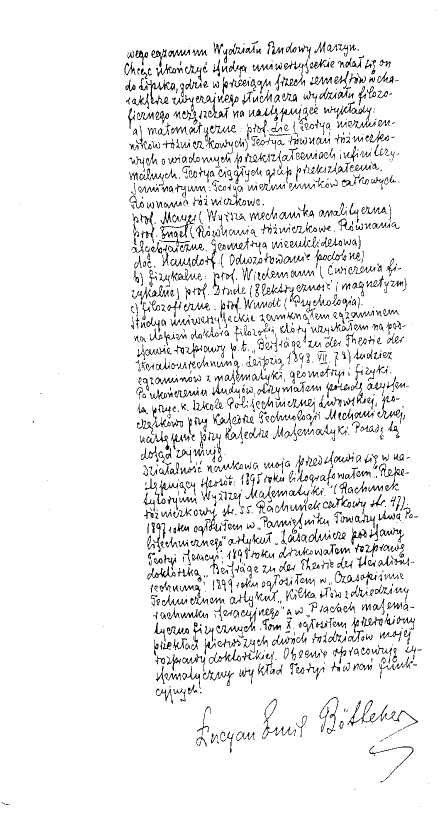 wego egzaminu Wydziału Budowy Maszyn.
Chcąc ukończyć studya uniwersyteckie udał się on
do Lipska, gdzie w przeciągu trzech semestrów w cha-
rakterze zwyczajnego słuchacza wydziału filozo-
ficznego uczęszczał na następujące wykłady:
a) matematyczne: prof. Lie (Teorya niezmien-
ników różniczkowych, Teorya równań różniczko-
wych o wiadomych przekształceniach infinitezy-
malnych. Teorya ciągłych grup przekształcenia.
Seminaryum: Teorya niezmienników całkowych.
Równania różniczkowe.
prof. Mayer (Wyższa mechanika analityczna)
prof. Engel (Równania różniczkowe. Równania
algebraiczne. Geometrya nieeuklidesowa)
doc. Hausdorf (Odwzorowanie podobne)
b) fizykalne: prof. Wiedemann (Cwiczenia fi-
zykalne) prof. Drude (Elektryczność i magnetyzm)
c) filozoficzne: prof. Wundt (Psychologia).
Studya uniwersyteckie zamknąłem egzaminem
na stopień doktora filozofii, który uzyskałem na pod-
stawie rozprawy p. t. „Beiträge zu der Theorie der
Iterationsrechnung. Leipzig 1898. VII, 78) tudzież
egzaminów z matematyki, geometryi i fizyki.
Po ukończeniu studyów otrzymałem posadę asysten-
ta przy c. k. Szkole Politechnicznej Lwowskiej, po-
czątkowo przy Katedrze Technologii Mechanicznej,
następnie przy Katedrze Matematyki. Posadę tą
dotąd zajmuję.
Działalność naukowa moja przedstawia się w na-
stępujący sposób: 1895 roku litografowałem „Repe-
tytoryum Wyższej Matematyki" (Rachunek
różniczkowy str. 55. Rachunek całkowy str. 47).
1897 roku ogłosiłem w „Pamiętniku Towarzystwa Po-
litechnicznego" artykuł „Zasadnicze podstawy
Teoryi iteracyi". 1898 roku drukowałem rozprawę
doktorską „Beiträge zu der Theorie der Iterations-
rechnung." 1899 roku ogłosiłem w „Czasopiśmie
Technicznem artykuł „Kilka słów z dziedziny
rachunku iteracyjnego" a w „Pracach matema-
tyczno fizycznych. Tom X. ogłosiłem przerobiony
przekład pierwszych dwóch rozdziałów mojej
rozprawy doktorskiej. Obecnie opracowuję sy-
stematyczny wykład Teoryi równań funk-
cyjnych.
Lucyan Emil Böttcher